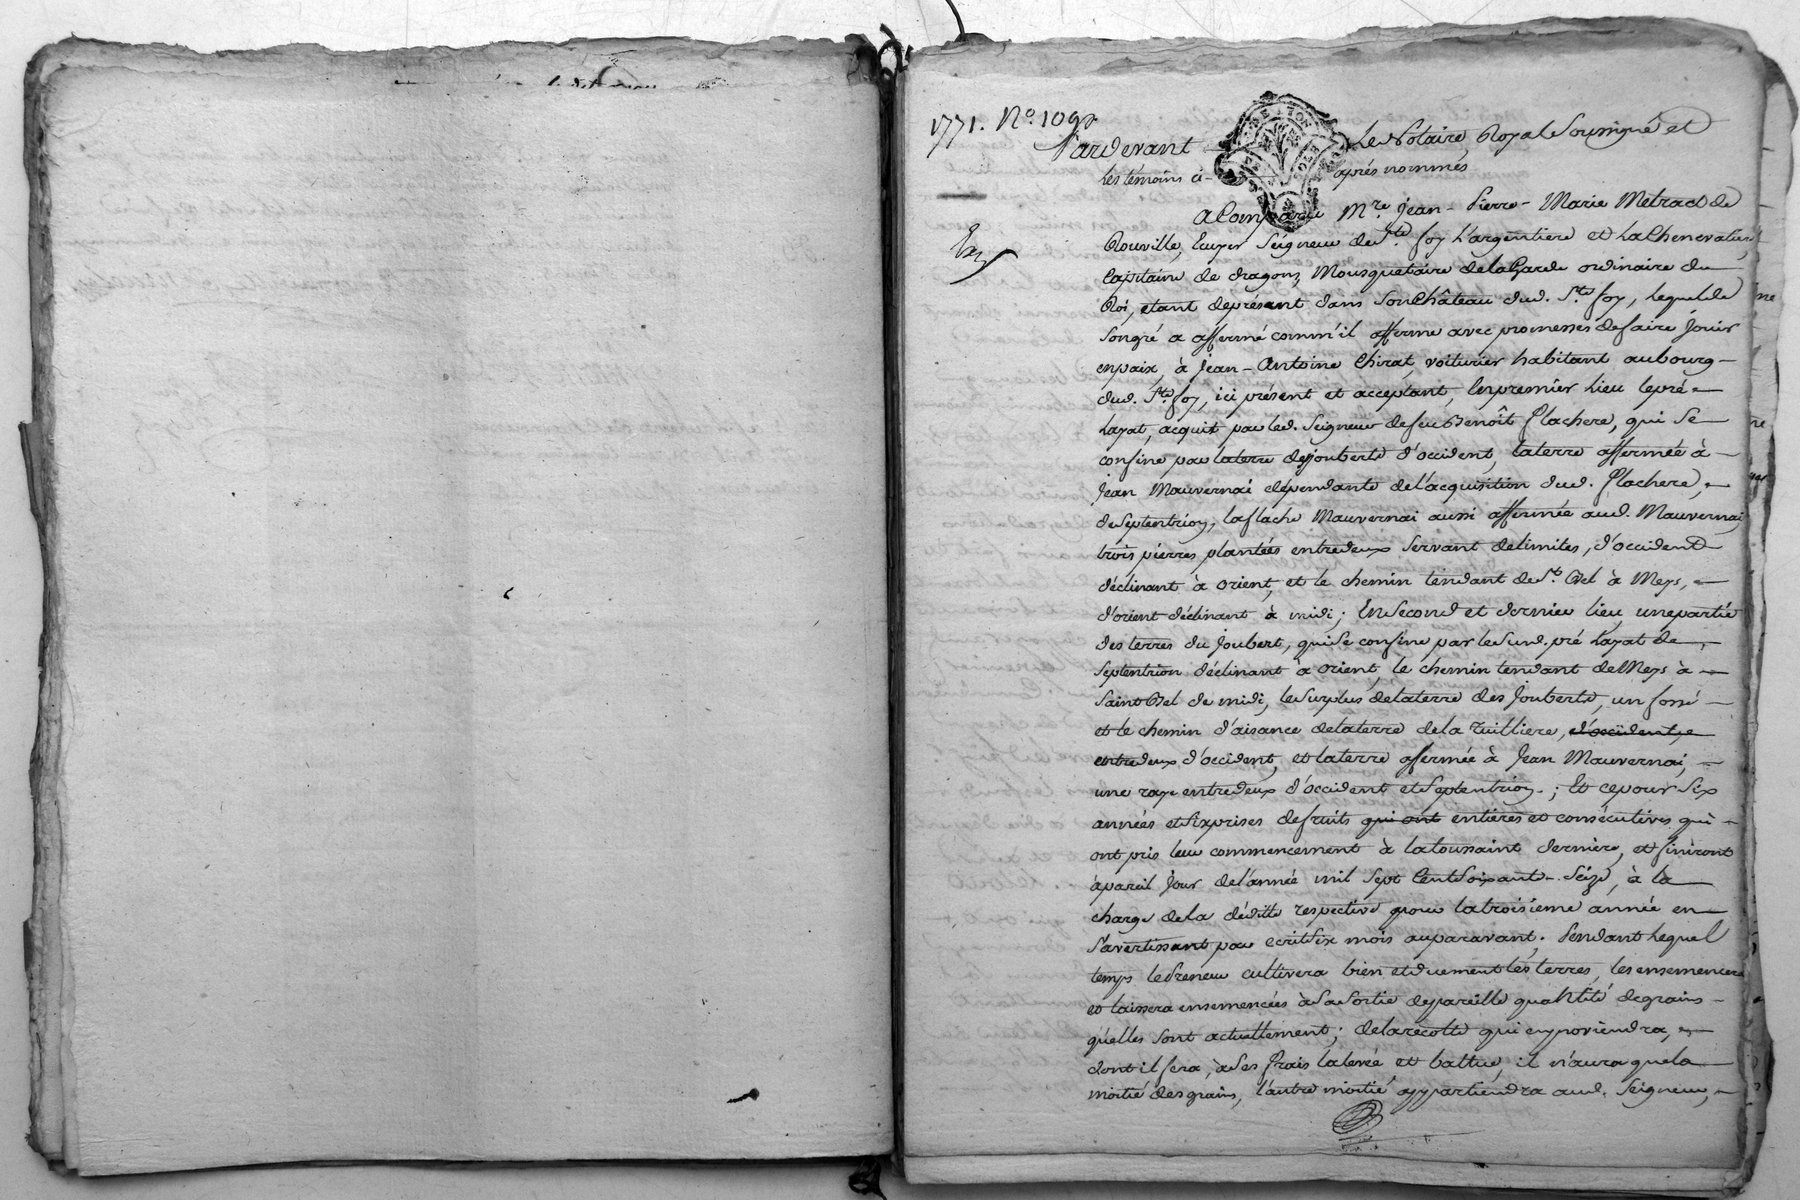 1771. No. 109.
Pardevant Le Notaire Royal Soussigné et
les témoins ci- après nommés
a Comparu Mre. Jean - Pierre - Marie Metrac de
Rouville, Ecuyer Seigneur de Ste. foy L'argentiere et La Chenevatiere,
Capitaine de dragons, Mousquetaire de la Garde ordinaire du
Roi, etant de présent dans Son Château dud. Ste. foy, Lequel de
Son gré a affermé comm'il afferme avec promesses de faire Jouir
en paix, à Jean - Antoine Chirat, voiturier habitant au bourg
dud. Ste. foy, ici présent et acceptant, En premier Lieu le pré
Layat, acquit par led. Seigneur de feu Benoît Flachere, qui Se
confine par la terre des Jouberts d'occident, la terre affermée à
Jean Mauvernai dépendante de l'acquisition dud. Flachere,
de Septentrion, la flache Mauvernai aussi affermée aud. Mauvernai
trois pierres plantées entredeux Servant de limites, d'occident
déclinant à orient, et le chemin tendant de St. Bel à Meys,
d'orient déclinant à midi; En Second et dernier Lieu, une partie
des terres du Joubert, qui Se confine par le Susd. pré Layat de
Septentrion déclinant à orient, le chemin tendant de Meys à
Saint Bel de midi, le Surplus de la terre des Jouberts, un fossé
et le chemin d'aisance de la terre de la Tuilliere, d'occident,
entredeux d'occident, et la terre affermée à Jean Mauvernai,
une raye entredeux d'occident et Septentrion; Et ce pour Six
années et Six prises de fruits qui ont entières et consécutives qui
ont pris leur commencement à la toussaint derniere, et finiront
à pareil Jour de l'année mil Sept Cent Soixante - Seize, à la
charge de la déditte respective pour la troisieme année en
S'avertissant par ecrit Six mois auparavant. Pendant Lequel
temps le Preneur cultivera bien et duement les terres, les ensemencera
et laissera ensemencées à Sa Sortie de pareille quantité de grains
qu'elles Sont actuellement; de la récolte qui en proviendra,
dont il fera, à Ses frais la levée et battue, il n'aura que la
moitié des grains, l'autre moitié appartiendra aud. Seigneur,